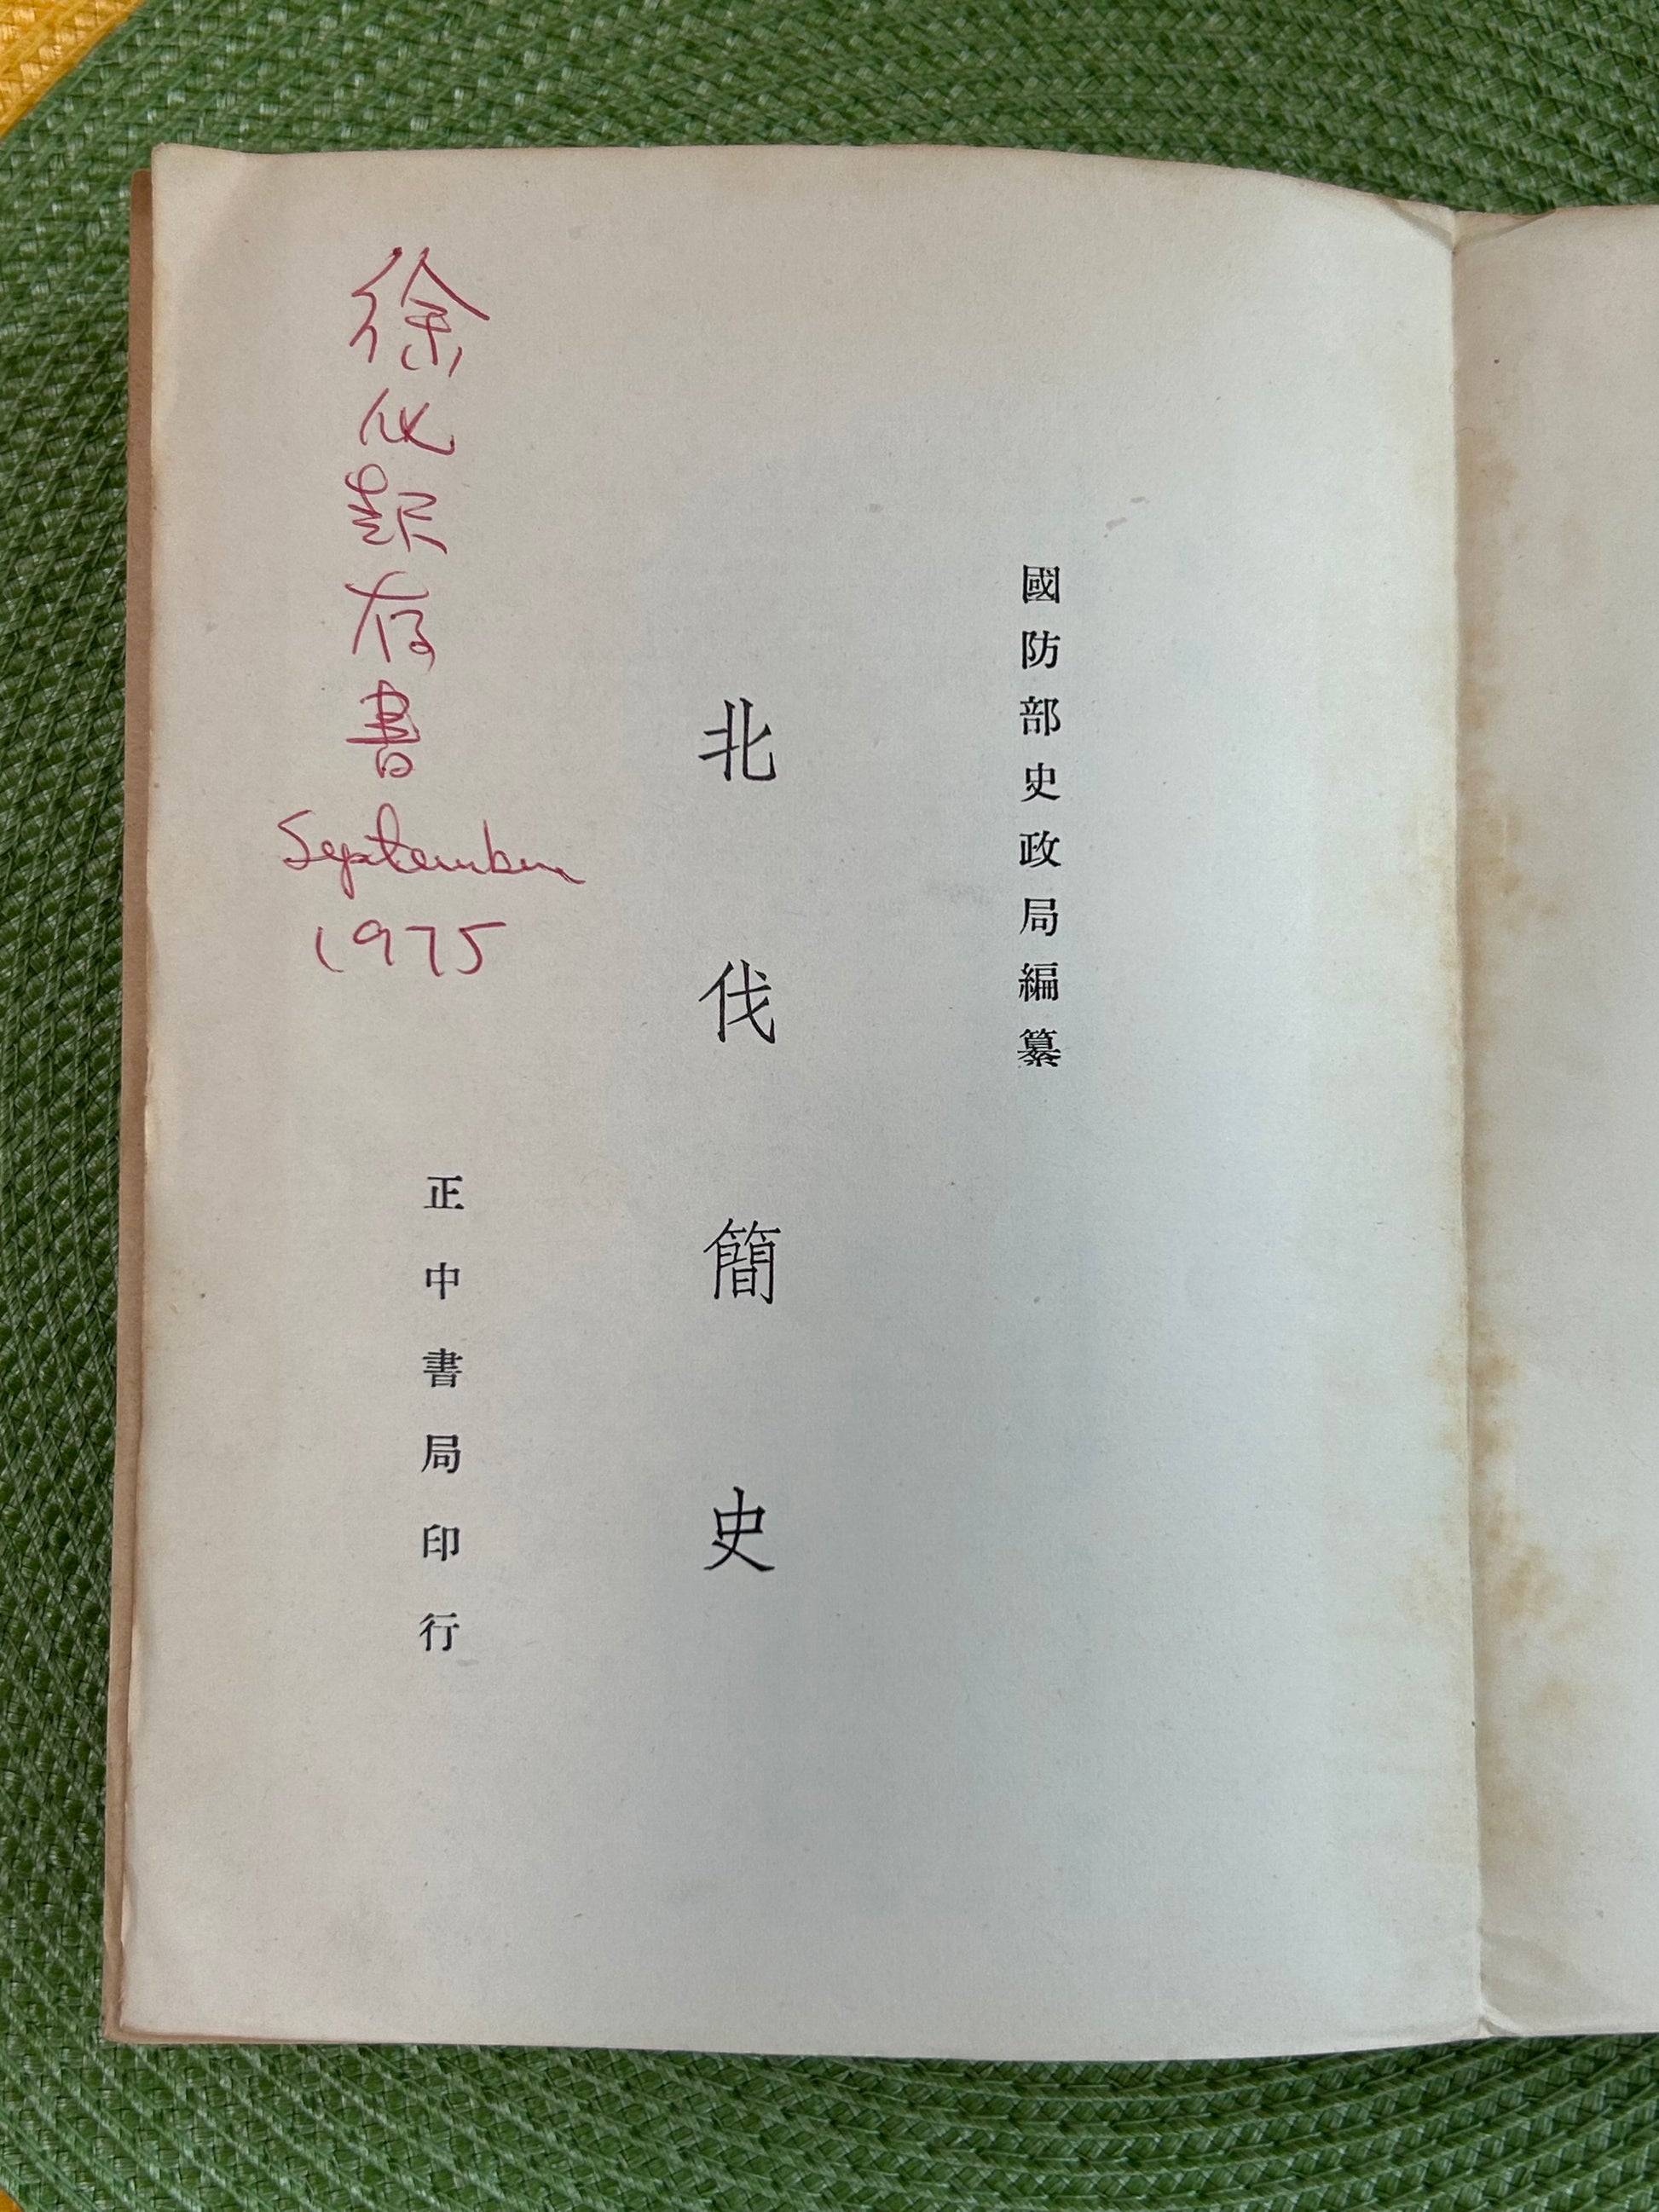 國防部史政局編纂
北伐簡史
正中書局印行
徐存書
September
1975